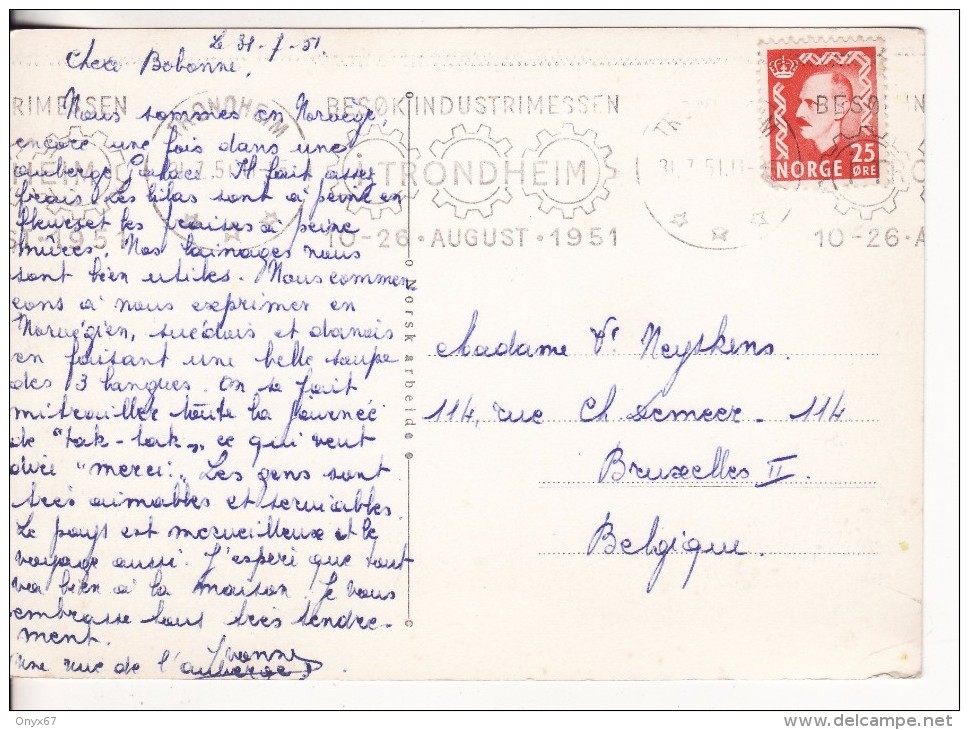 Le 31-7-51.
Chere Bobonne,
Nous sommes en Norvège,
encore une fois dans une
auberge Palace. Il fait assez
frais. Les lilas sont à peine en
fleurs et les fraises à peine
mûres. Nos lainages nous
sont bien utiles. Nous commen
çons à nous exprimer en
Norvégien, suédois et danois
en faisant une belle soupe
des 3 langues. On se fait
mitrailler toute la journée
de "tak-tak", ce qui veut
dire "merci". Les gens sont
très aimables et serviables.
Le pays est merveilleux et le
voyage aussi. J'espère que tout
va bien à la maison. Je vous
embrasse tous très tendre-
ment.
Yvonne
Une vue de l'auberge
Norsk arbeide
RIMESSEN
HEIM
ST·1951
TRONDHEIM
31.7.51
BESØK INDUSTRIMESSEN
I TRONDHEIM
10-26·AUGUST·1951
31.7.51.11
BESØK IN
TRO
10-26·A
NORGE 25 ØRE
Madame Vᵉ Neyskens.
114, rue Ch. Demeer. 114
Bruxelles II.
Belgique.
Onyx67
www.delcampe.net